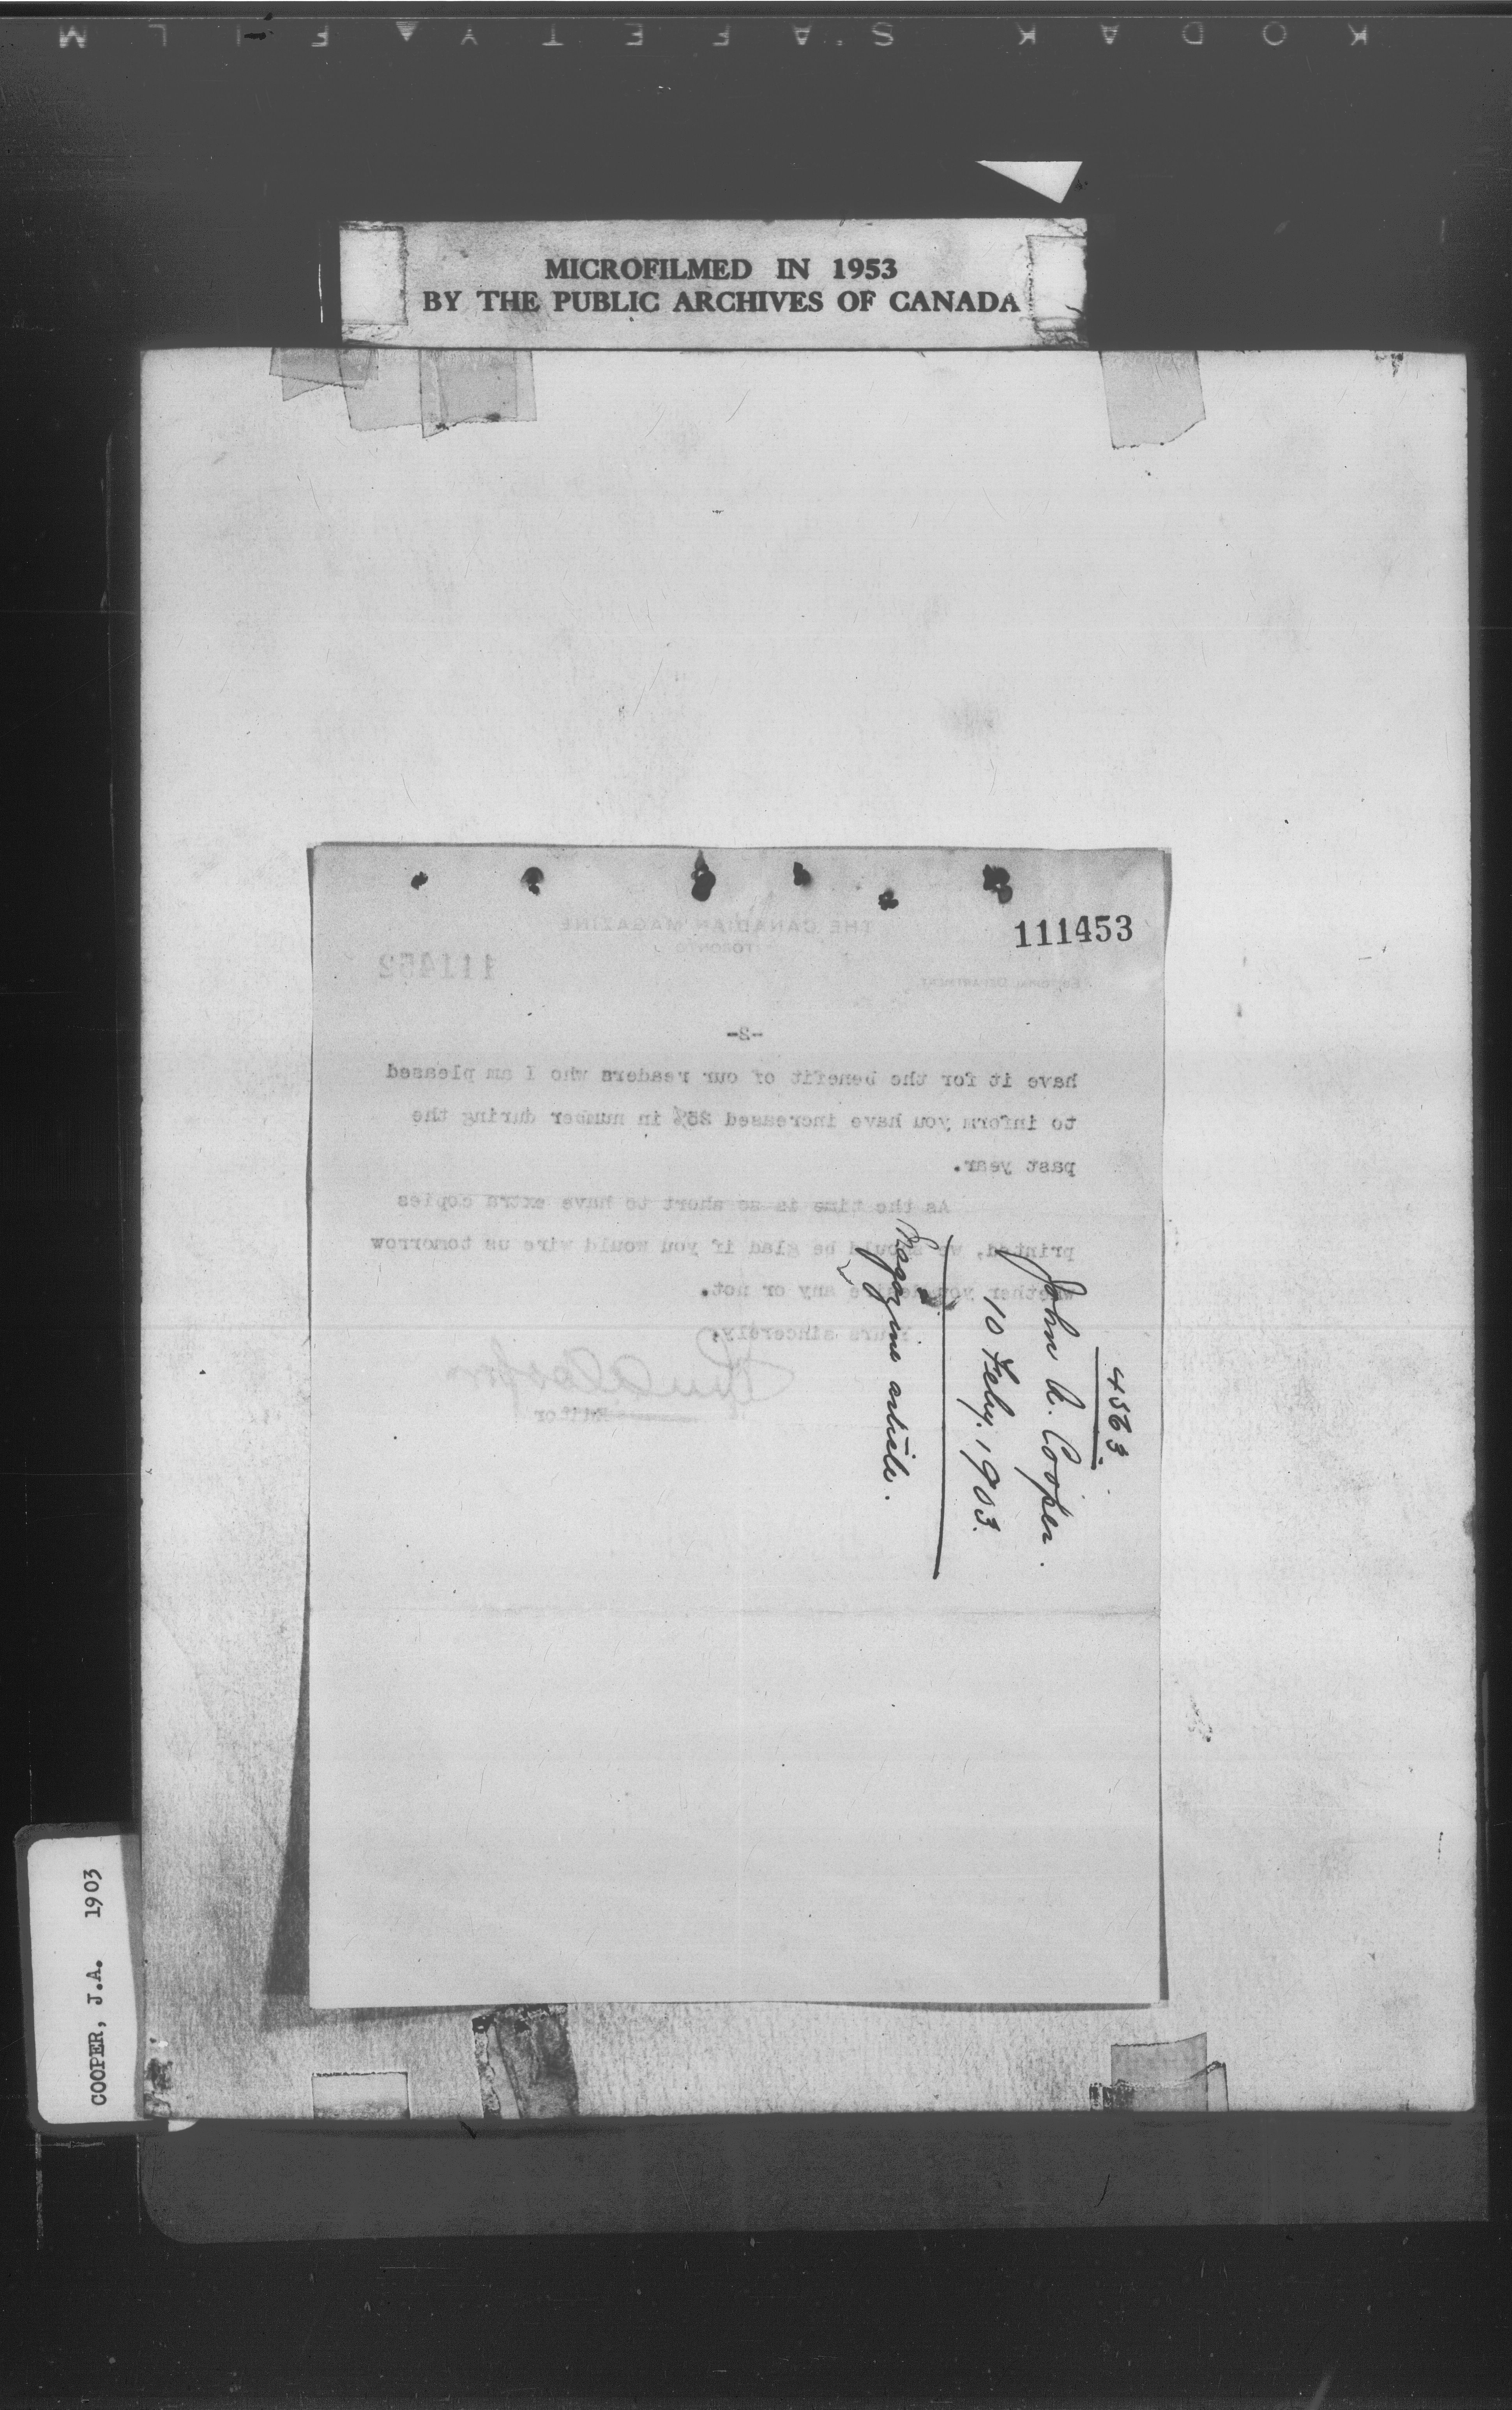 KODAK SAFETY FILM
MICROFILMED IN 1953
BY THE PUBLIC ARCHIVES OF CANADA
111453
THE CANADIAN MAGAZINE
TORONTO
111452
EDITORIAL DEPARTMENT
-2-
have it for the benefit of our readers who I am pleased
to inform you have increased 25% in number during the
past year.
As the time is so short to have extra copies
printed, we should be glad if you would wire us tomorrow
whether you desire any or not.
Yours sincerely,
Editor
4563
John A. Cooper.
10 Feby. 1903.
Magazine article.
COOPER, J.A. 1903